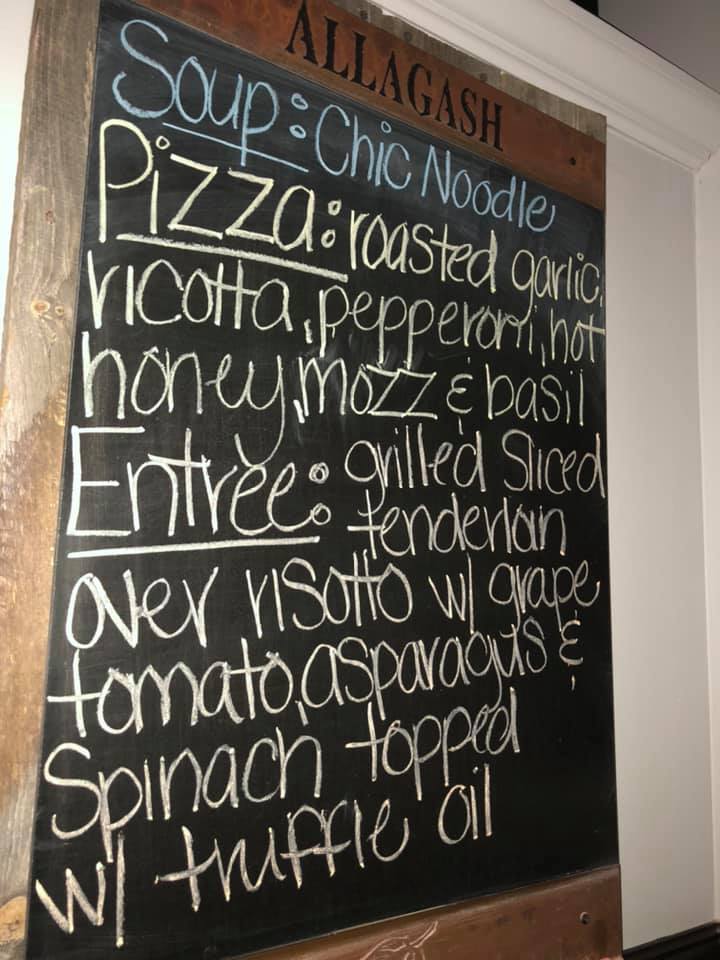 ALLAGASH
Soup: Chic Noodle
Pizza: roasted garlic,
ricotta, pepperoni, hot
honey, mozz & basil
Entrée: grilled Sliced
tenderloin
over risotto w/ grape
tomato, asparagus &
Spinach topped
w/ truffle oil